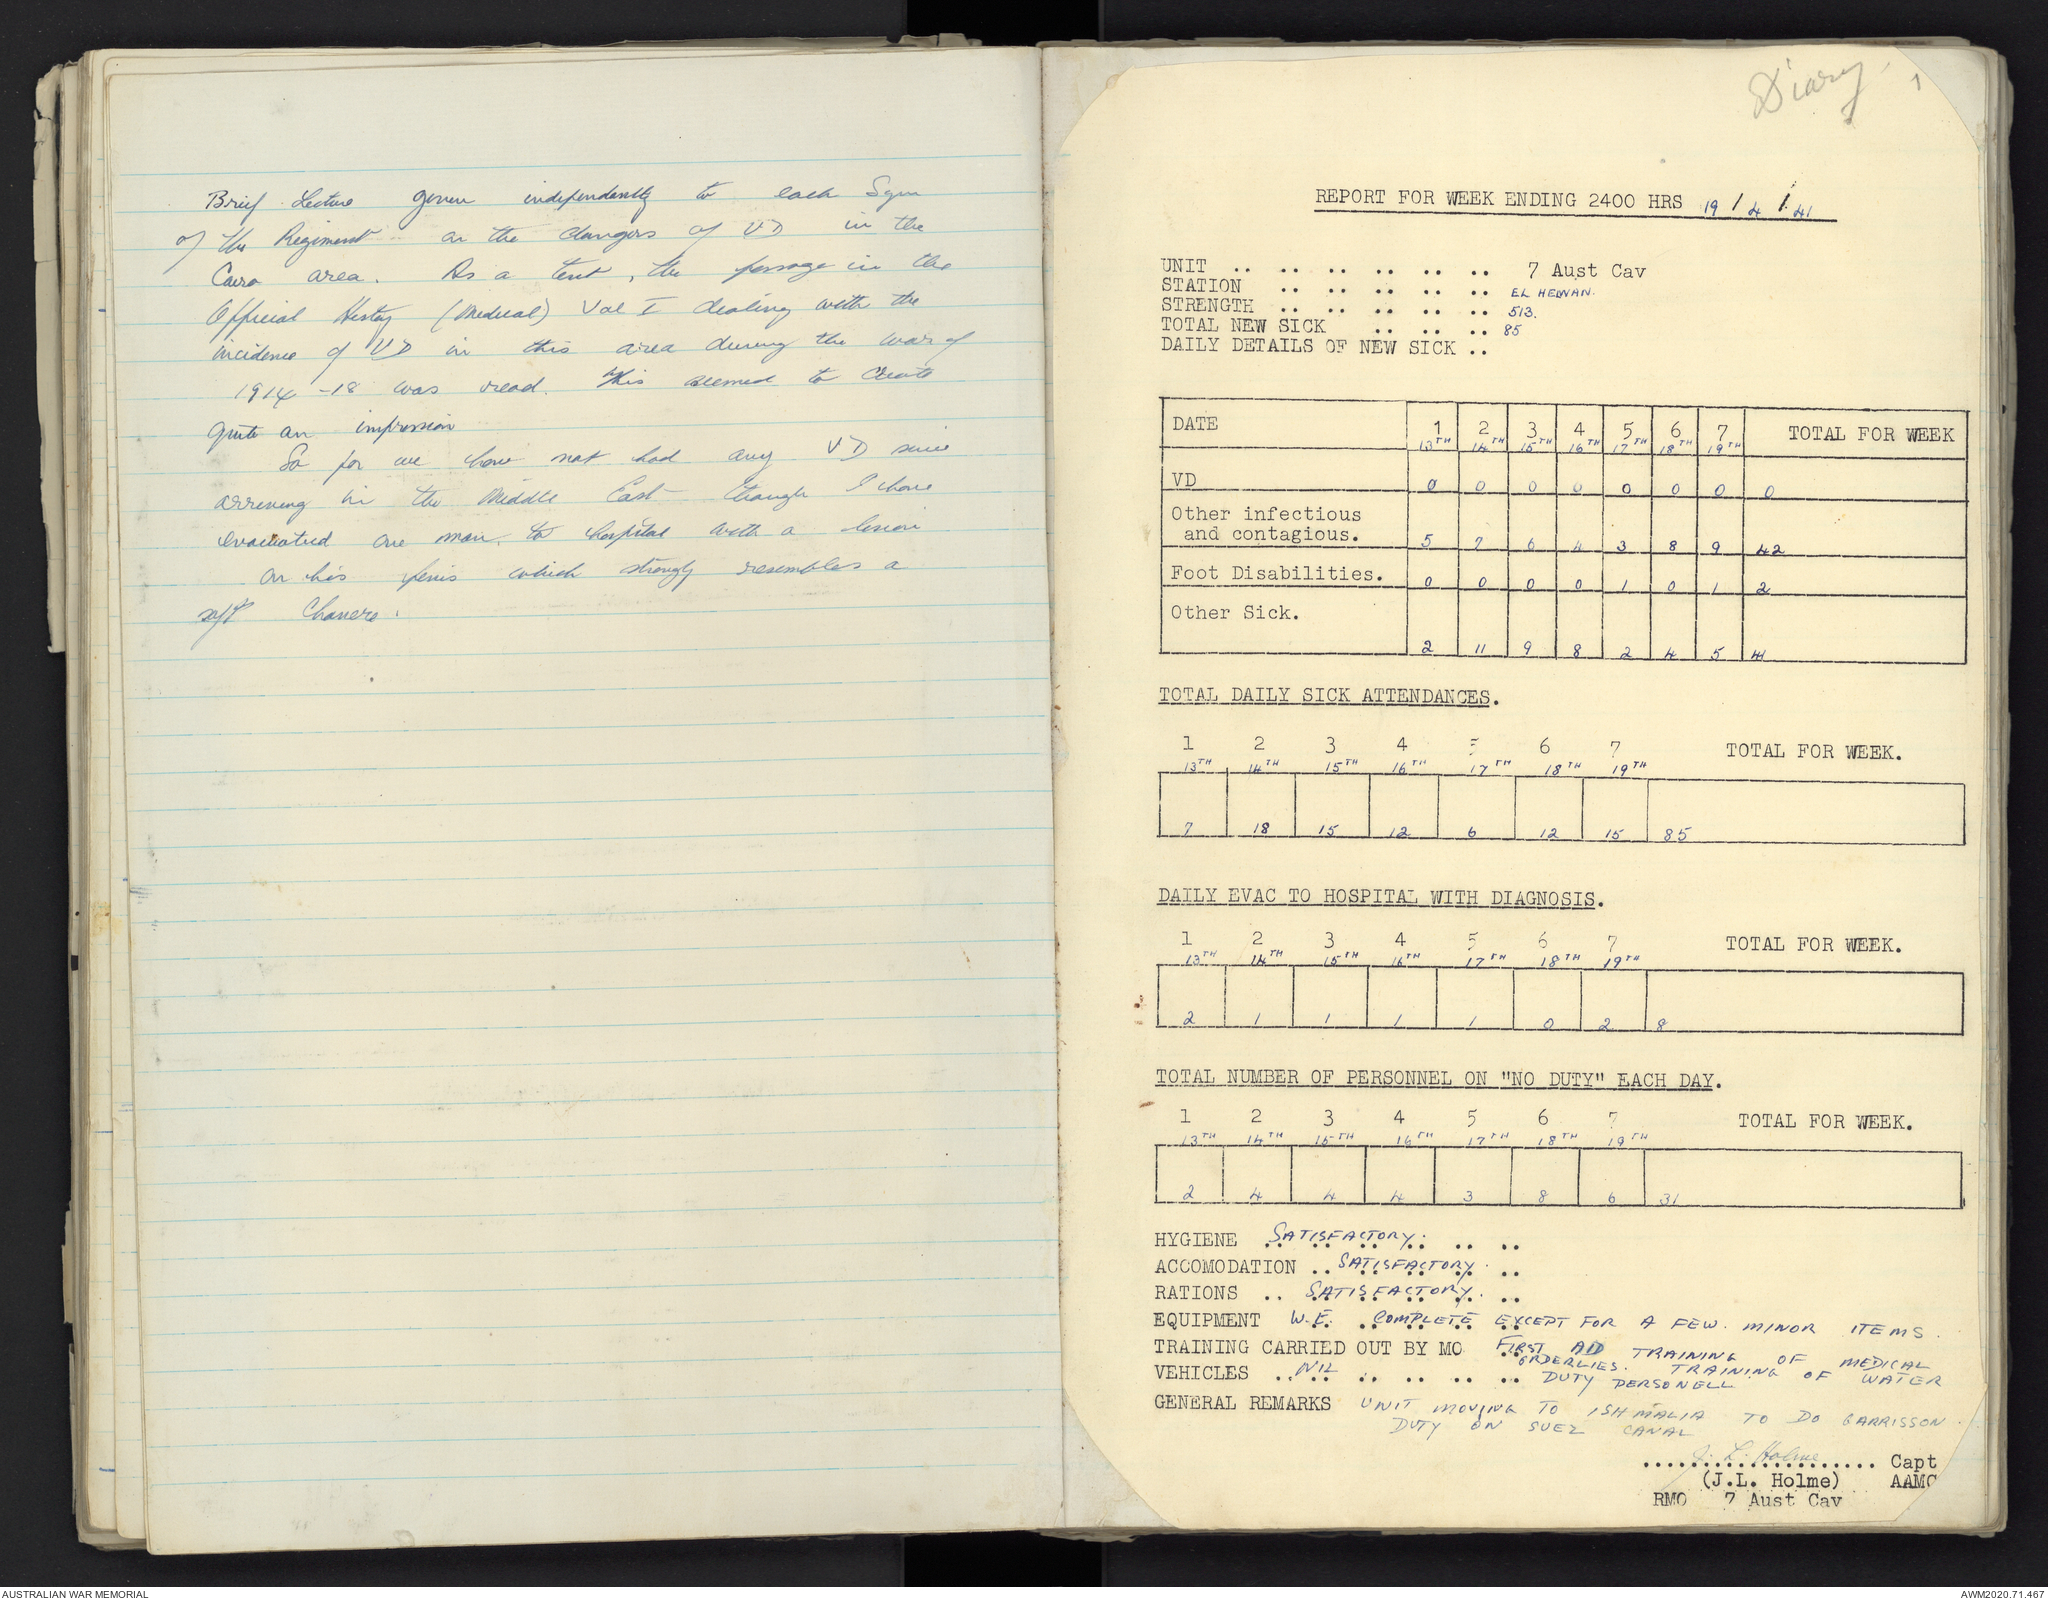 Brief Lecture given independently to each Sqn
of the Regiment on the dangers of VD in the
Cairo area. As a text, the passage in the
Official History (Medical) Vol I dealing with the
incidence of VD in this area during the war of
1914-18 was read. This seemed to create
quite an impression
So far we have not had any VD since
arriving in the Middle East though I have
evacuated one man to hospital with a lesion
on his penis which strongly resembles a
soft Chancre.
Diary
1
REPORT FOR WEEK ENDING 2400 HRS 19/4/41
UNIT .. .. .. .. .. .. 7 Aust Cav
STATION .. .. .. .. .. EL HELWAN.
STRENGTH .. .. .. .. .. 513.
TOTAL NEW SICK .. .. .. 85
DAILY DETAILS OF NEW SICK ..
DATE 1 2 3 4 5 6 7 TOTAL FOR WEEK
13TH 14TH 15TH 16TH 17TH 18TH 19TH
VD 0 0 0 0 0 0 0 0
Other infectious
and contagious. 5 7 6 4 3 8 9 42
Foot Disabilities. 0 0 0 0 1 0 1 2
Other Sick.
2 11 9 8 2 4 5 41
TOTAL DAILY SICK ATTENDANCES.
1 2 3 4 5 6 7 TOTAL FOR WEEK.
13TH 14TH 15TH 16TH 17TH 18TH 19TH
7 18 15 12 6 12 15 85
DAILY EVAC TO HOSPITAL WITH DIAGNOSIS.
1 2 3 4 5 6 7 TOTAL FOR WEEK.
13TH 14TH 15TH 16TH 17TH 18TH 19TH
2 1 1 1 1 0 2 8
TOTAL NUMBER OF PERSONNEL ON "NO DUTY" EACH DAY.
1 2 3 4 5 6 7 TOTAL FOR WEEK.
13TH 14TH 15TH 16TH 17TH 18TH 19TH
2 4 4 4 3 8 6 31
HYGIENE SATISFACTORY.
ACCOMODATION .. SATISFACTORY.
RATIONS .. SATISFACTORY.
EQUIPMENT W.E. COMPLETE EXCEPT FOR A FEW MINOR ITEMS.
TRAINING CARRIED OUT BY MO FIRST AID TRAINING OF MEDICAL
ORDERLIES. TRAINING OF WATER
VEHICLES .. NIL .. .. .. .. DUTY PERSONELL
GENERAL REMARKS UNIT MOVING TO ISHMALIA TO DO GARRISSON
DUTY ON SUEZ CANAL
J. L. Holme Capt
(J.L. Holme) AAMC
RMO 7 Aust Cav
AUSTRALIAN WAR MEMORIAL
AWM2020.71.467